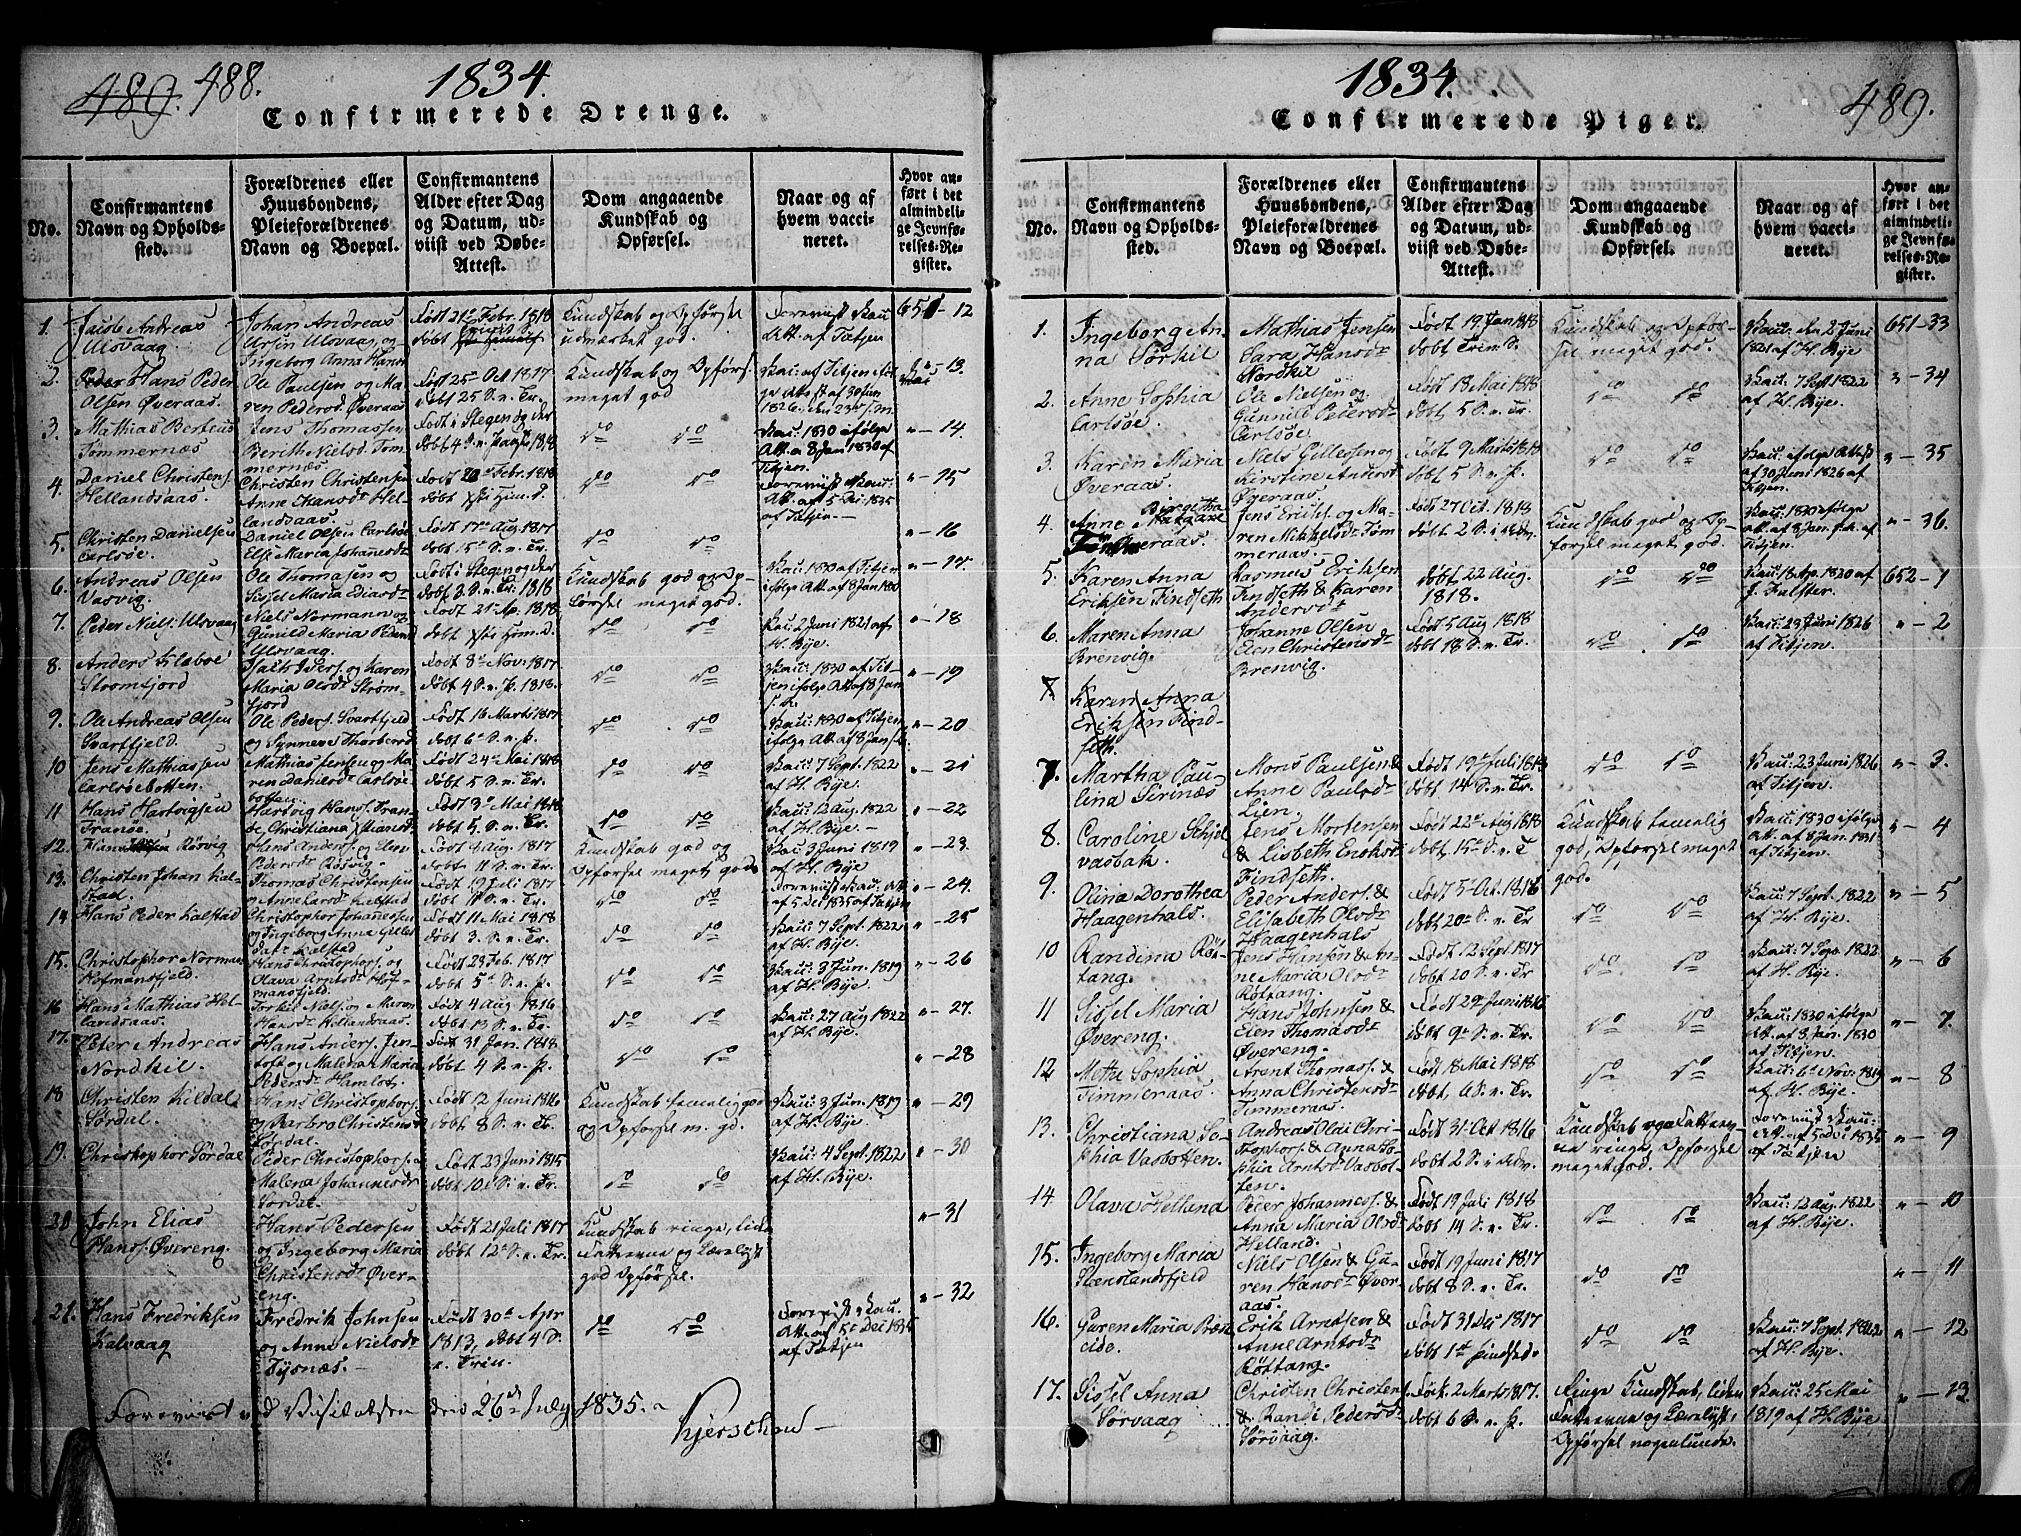 489. 488.
1834.
Confirmerede Drenge.
No.
Confirmantens
Navn og Opholds-
sted.
Forældrenes eller
Huusbondens,
Pleieforældrenes
Navn og Boepæl.
Confirmantens
Alder efter Dag
og Datum, ud-
viist ved Døbe-
Attest.
Dom angaaende
Kundskab og
Opførsel.
Naar og af
hvem vacci-
neret.
Hvor an-
ført i det
almindeli-
ge Jevnfø-
relses-Re-
gister.
1. Jacob Andreas
Ulsvaag.
Johan Andreas
Ursin Ulsvaag og
Ingeborg Anna Hansd
Født 21de Febr. 1818
døbt
Kundskab og Opførsel
udmærket god.
Forevist Vac:
Att. af Titjen
651-12
2. Peder Hans Peder
Olsen Øveraas.
Ole Paulsen og Ma-
ren Pedersd Øveraas
Født 25 Oct 1817
døbt 25 S. e. Tr.
Kundskab og Opførs.
meget god
Vac: af Titjen
1826
" - 13.
3. Mathias Berteus
Tommernæs
Jens Thomassen
Berith Nielsd Tom
mernæs
Født i Stegen og der
døbt 4 S. e. Paaske 1818
do do
Vac: 1830 ifølge
Att. a 8 Jan 1830 af
Titjen.
" - 14.
4. Daniel Christens.
Hellandsaas.
Christen Christensen
Anne Hansdr Hel-
landsaas.
Født 20 Febr. 1818
døbt
do do
Forevist Vac:
Att. af 5 Dei 1835
af Titjen
" - 15
5. Christen Danielsen
Carlsøe.
Daniel Olsen Carlsøe
Else Maria Johanesdr
Født 17de Aug 1817
døbt 15de S. e. Tr.
do do
" - 16
6. Andreas Olsen
Vasvig.
Ole Thomasen og
Sissel Maria Eliasdr
Født i Stegen og der
døbt 3 S. e. Tr. 1818
Kundskab god og Op-
førsel meget god.
Vac: 1830 af Titjen
ifølge Att. af 8 Jan 1830
" - 17.
7. Peder Niels. Ulsvaag
Niels Normann og
Gunild Maria Pedersd
Ulsvaag.
Født 21de Ap. 1818
døbt Xsti Him. d.
do do
Vac: 2 Juni 1821 af
H. Bye.
" - 18
8. Anders Klæboe
Stromfjord
Jacob Ivers. og Karen
Maria Olsdr Strøm-
fjord
Født 8de Nov: 1817
døbt 4 S. e. P. 1818.
do do
Vac: 1830 af Tit-
jen ifølge Att. af 8 Jan
" - 19
9. Ole Andreas Olsen
Svartfjeld.
Ole Peders. Svartfjeld
og Synneve Thorbersd
Født 16 Marts 1817
døbt 6te S. e. P.
do do
Vac: 1830 af Titjen
ifølge Att. af 8 Jan
" - 20
10 Jens Mathiassen
Carlsøebotten.
Mathias Jensen og Ma-
ren Danielsdr Carlsøe
botten.
Født 24de Mai 1818
døbt 5 S. e. Tr.
do do
Vac: 7 Sept. 1822
af H. Bye.
" - 21
11 Hans Hartvigsen
Tranøe.
Hartvig Hans. Tran-
øe, Christiana
Født 3de Mai 1818
døbt 5. S. e. Tr.
do do
Vac: 12 Aug. 1822
af H. Bye.
" - 22
12. Hans Røsvig
Hans Anders. og Elen
Pedersdr Røsvig.
Født 4 Aug. 1817
døbt 11 S. e. Tr.
Kundskab god og
Opførsel meget god
Vac: 3 Juni 1819
af H. Bye
" - 23.
13. Christen Johan Kal-
stad.
Thomas Christensen
og Anne Larsd Kalstad
Født 19 Juli 1817
døbt 11 S. e. Tr.
do do
Forevist Vac. Att.
af 5 Dei 1835 af Titjen
" - 24.
14 Hans Peder Kalstad
Christophor Johannesen
og Ingeborg Anna
Kalstad
Født 11 Mai 1818
døbt 3. S. e. Tr.
do do
Vac: 7 Sept. 1822
af H. Bye.
" - 25
15. Christophor Norman
Hofmansfjeld.
Hans Christophors. og
Olava Arntsdr Hof-
mansfjeld.
Født 23 Feb. 1817
døbt 5te S. e. P.
do do
Vac: 3 Jun. 1819
af H. Bye.
" - 26
16 Hans Mathias Hel-
landsaas.
Torkil Niels. og Maren
Hansdr Hellandsaas.
Født 4 Aug. 1816
døbt 13 S. e. Tr.
do do
Vac: 27 Aug 1822
af H. Bye.
" - 27.
17. Peter Andreas
Nordkil.
Hans Anders. Jen-
toft og Malena Maria
Pedersdr Hamlot.
Født 31 Jan. 1818.
døbt 4 S. e. P.
do do
" - 28
18 Christen Kildal
Sørdal.
Hans Christophors.
og Barbro Christensd
Sørdal.
Født 12 Juni 1816
døbt 8 S. e. Tr.
Kundskab temelig god
og Opførsel m. gd.
Vac: 3 Jun. 1819
af H. Bye.
" - 29
19. Christophor Sørdal
Peder Christophors. og
Malena Johannesdr
Sørdal.
Født 23 Juni 1815
døbt 10de S. e. Tr.
do do
Vac: 4 Sept. 1822
af H. Bye.
" - 30
20 John Elias
Hans. Øvereng.
Hans Pedersen
og Ingeborg Maria
Christensdr Øver-
eng.
Født 21 Juli 1817
døbt 12te S. e. Tr.
Kundskab ringe, liden
Fatteevne og Lærelyst
god Opførsel.
" - 31
21. Hans Fredriksen
Kalvaag
Fredrik Johnsen
og Anne Nielsdr
Tysnæs.
Født 30te Apr
1813, døbt 4 S.
e. Trin.
do do
Forevist Vac.
Att. af 5te Dei 1835
af Titjen
" - 32
Forevist ved Visitatsen den 26de July 1835.
Kjerschow
1834.
489.
Confirmerede Piger.
No.
Confirmantens
Navn og Opholds-
sted.
Forældrenes eller
Huusbondens,
Pleieforældrenes
Navn og Boepæl.
Confirmantens
Alder efter Dag
og Datum, ud-
viist ved Døbe-
Attest.
Dom angaaende
Kundskab og
Opførsel.
Naar og af
hvem vacci-
neret.
Hvor an-
ført i det
almindeli-
ge Jevnfø-
relses-Re-
gister.
1. Ingeborg An-
na Sørkil
Mathias Jensen
Sara Hansdr
Nordkil
Født 19 Jan 1818
døbt Trin. S.
Kundskab og Opfør-
sel meget god.
Vac: den 2 Juni
1821 af H. Bye
651-33
2. Anne Sophia
Carlsøe.
Ole Nielsen og
Gunnild Pedersdr
Carlsøe.
Født 18 Mai 1818
døbt 5 S. e. Tr.
do do
Vac: 7 Sept. 1822
af H. Bye.
" - 34
3. Karen Maria
Øveraas
Niels Gillessen og
Kirstine Andersd
Øveraas.
Født 9 Marts 1818
døbt 5 S. e. P.
do do
Vac: ifølge Attest
af 30 Juni 1826 af
Titjen.
" - 35
4. Anne Birgetha
Øveraas.
Jens Eriks. og Ma-
ren Mikkelsdr Tøm
meraas.
Født 27 Oct. 1818
døbt 2 S. i Adv.
Kundskab god og Op-
førsel meget god.
Vac: 1830 ifølge
att. af 8 Jan. af
Titjen.
" - 36.
5. Karen Anna
Eriksen Findseth
Rasmus Eriksen
Findseth & Karen
Andersdr
døbt 22 Aug.
1818.
do do
Vac: 18 Ap. 1820 af
J. Falster.
652-1
6. Maren Anna
Brenvig.
Johanne Olsen
Elen Christensdr
Brenvig.
Født 5 Aug 1818
døbt 18 S. e. Tr.
do do
Vac: 23 Juni 1826
af Titjen.
" - 2
7. Karen Anna
Eriksen Find-
seth.
7. Martha Pau-
lina Sirinæs
Mons Paulsen &
Anne Paulsdr
Lien.
Født 19de Juli 1818
døbt 14 S. e. Tr.
do do
Vac: 23 Juni 1826
af Titjen.
" - 3.
8. Caroline Schjel
vasbak.
Jens Mortensen
& Lisbeth Enoksd
Findseth.
Født 22de Aug 1818
døbt 15de S. e. T.
Kundskab temelig
god, Opførsel meget
god.
Vac: 1830 ifølge
Att. a 8 Jan. 1831
af Titjen.
" - 4
9. Olina Dorothea
Haagenhals.
Peder Anders. &
Elisabeth Olsdr
Haagenhals
Født 5te Oct. 1816
døbt 20de S. e. Tr
do do
Vac: 7 Sept. 1822
af H. Bye.
" - 5
10 Randina Røt-
tang.
Jens Hansen & An-
ne Maria Olsdr
Røttang.
Født 12 Sept. 1817
døbt 20 S. e. Tr
do do
Vac: 7 Sep. 1822
af H. Bye.
" - 6
11 Sissel Maria
Øvereng.
Hans Johnsen &
Elen Thomasdr
Øvereng.
Født 29de Juni 1816
døbt 9de S. e. Tr.
do do
Vac: 1830 ifølge
att. af 8 Jan. 1830
af Titjen.
" - 7.
12 Mette Sophia
Timmeraas.
Arent Thomass. &
Anna Christensdr
Timmeraas.
Født 18 Mai 1818
døbt 6 S. e. Tr.
do do
Vac: 6te Nov: 1819
af H. Bye.
" - 8
13. Christiana So-
phia Vasbotten.
Andreas Olai Chri-
stophors. & Anna So-
phia Arntsdr Vasbot-
ten.
Født 31 Oct 1816
døbt 2 S. i Adv.
Kundskab og Fatteev-
ne ringe, Opførsel
meget god.
Forevist Vac:
Att. af 5 Dei 1835
af Titjen
" - 9
14. Olava Helland
Peder Johanness. &
Anna Maria Olsdr
Helland.
Født 19 Juli 1818
døbt 14 S. e. Tr.
do do
Vac: 12 Aug. 1822
af H. Bye.
" - 10
15. Ingeborg Maria
Steenslandsfjeld
Niels Olsen & Gu-
ren Hansdr Øver-
aas.
Født 19 Juni 1817
døbt 8 S. e. Tr.
do do
" - 11
16. Guren Maria Bræn
eide.
Erik Arntsen &
Anne Arntsdr
Røttang.
Født 31 Dei 1817
døbt 1ste Pindsed.
do do
Vac: 7 Sept. 1822
af H. Bye.
" - 12
17. Sissel Anna
Sørvaag
Christen Christens.
& Randi Pedersdr
Sørvaag.
Født 2 Marts 1817.
døbt 6 S. e. P.
Ringe Kundskab, liden
Fatteevne og Lærelyst,
Opførsel nogenlunde.
Vac: 25 Mai
1819 af H. Bye
" - 13.